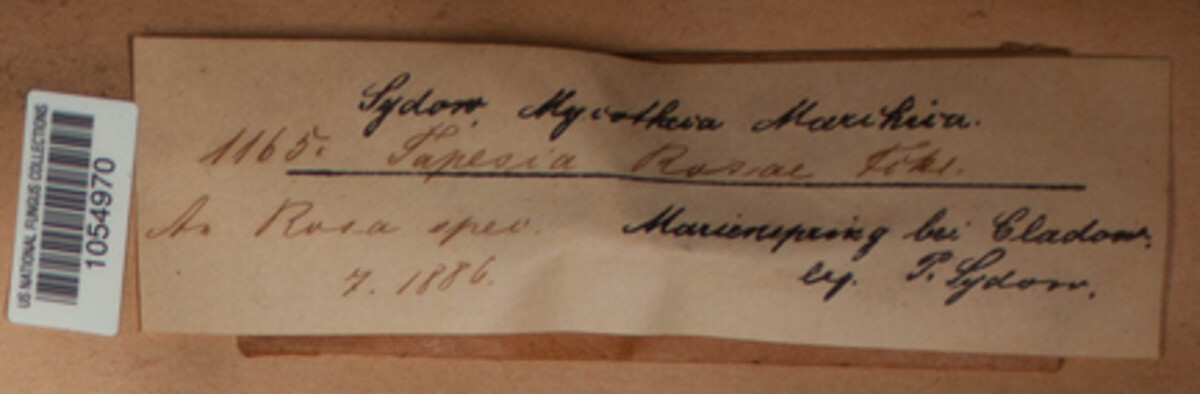 US NATIONAL FUNGUS COLLECTIONS
1054970
Sydow, Mycotheca Marchica.
1165. Tapesia Rosae Fckl.
An Rosa spec. Marienspring bei Cladow.
7. 1886. leg. P. Sydow.